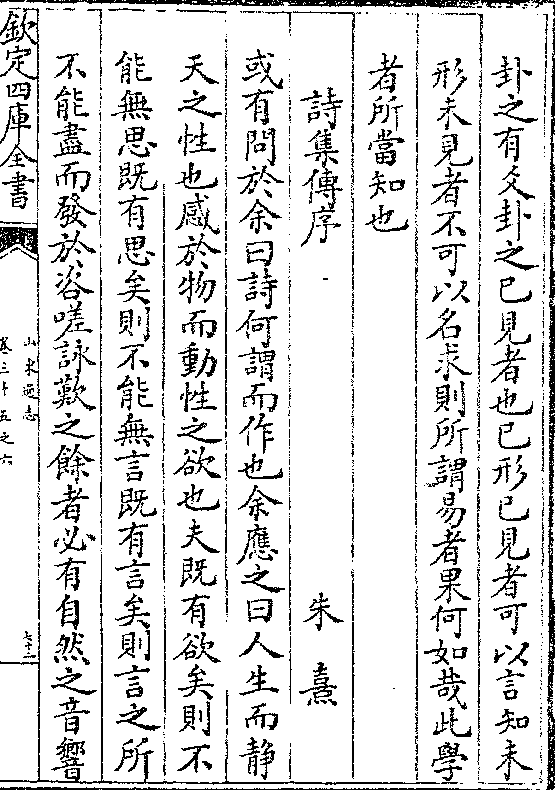 卦之有爻卦之已見者也已形已見者可以言知未
形未見者不可以名求則所謂易者果何如哉此學
者所當知也
詩集傳序 朱熹
或有問於余曰詩何謂而作也余應之曰人生而静
天之性也感於物而動性之欲也夫既有欲矣則不
能無思既有思矣則不能無言既有言矣則言之所
不能盡而發於咨嗟詠歎之餘者必有自然之音響
欽定四庫全書
山東通志
卷三十五之六